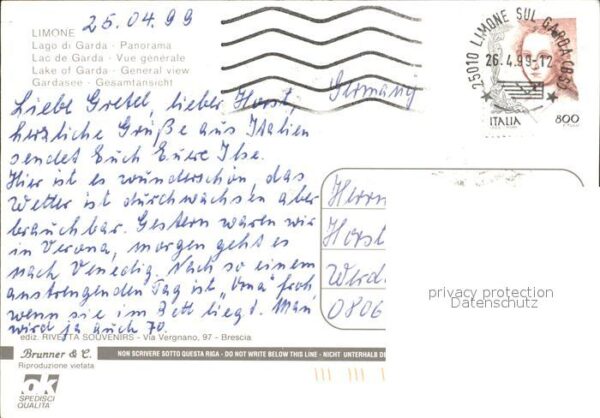 25.04.99
LIMONE
Lago di Garda · Panorama
Lac de Garda · Vue générale
Lake of Garda · General view
Gardasee · Gesamtansicht
Liebe Gretel, lieber Horst,
herzliche Grüße aus Italien
sendet Euch Eure Ilse.
Hier ist es wunderschön das
Wetter ist durchwachsen aber
brauchbar. Gestern waren wir
in Verona, morgen geht es
nach Venedig. Nach so einem
anstrengenden Tag ist "Oma" froh
wenn sie im Bett liegt. Man
wird ja auch 70.
Germany
25010 LIMONE SUL GARDA (BS)
26.4.99-12
ITALIA 800
Herrn
Horst
Werd
0806
privacy protection
Datenschutz
ediz. RIVETTA SOUVENIRS - Via Vergnano, 97 - Brescia
Brunner & C.
Riproduzione vietata
NON SCRIVERE SOTTO QUESTA RIGA - DO NOT WRITE BELOW THIS LINE - NICHT UNTERHALB DE
ok
SPEDISCI
QUALITÀ